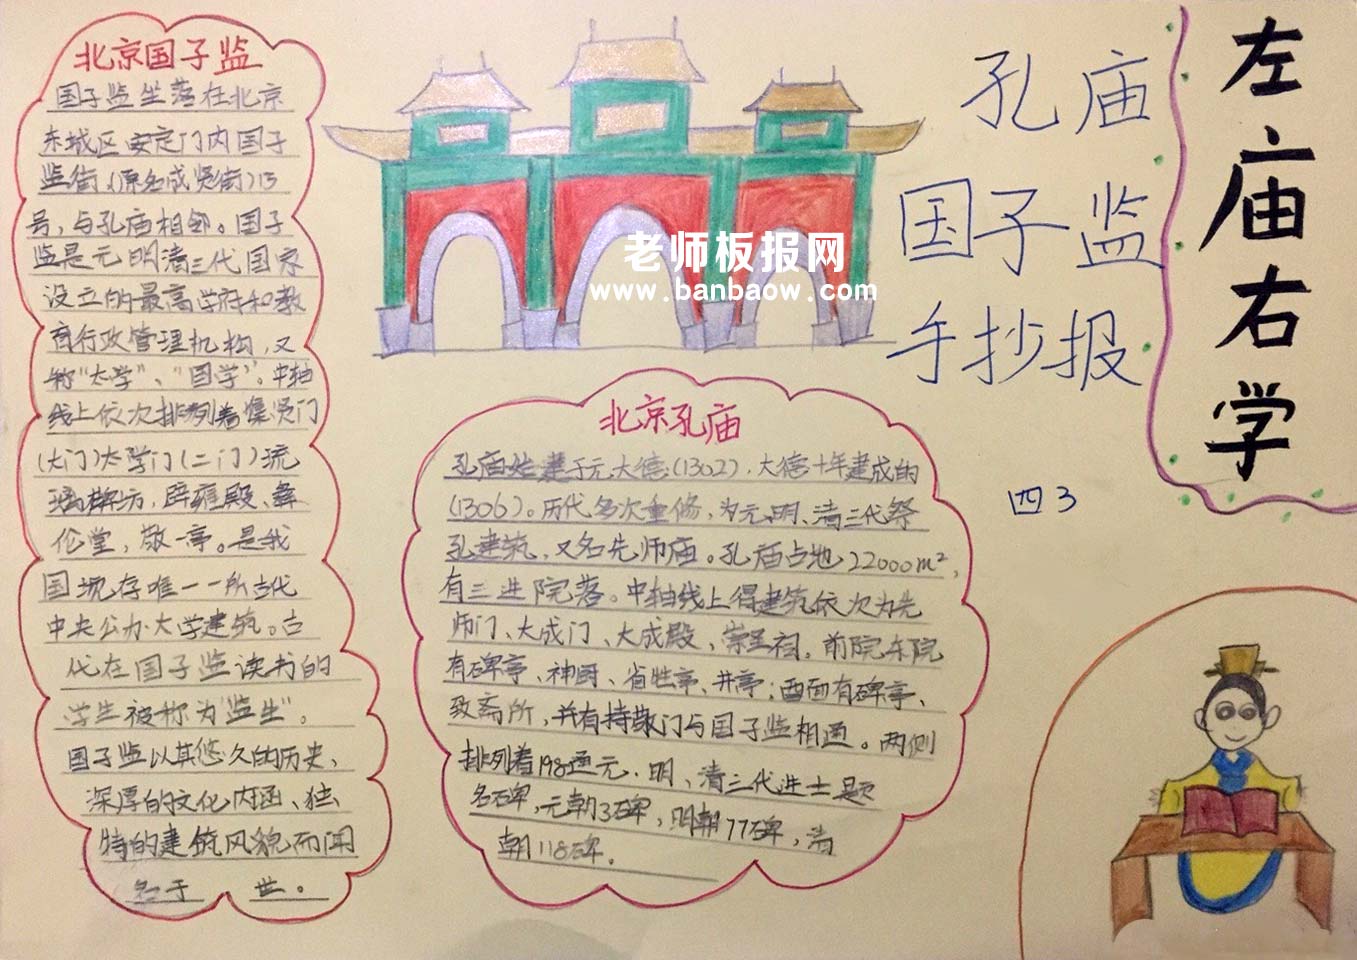 北京国子监
国子监坐落在北京
东城区安定门内国子
监街(原名成贤街)15
号,与孔庙相邻。国子
监是元明清三代国家
设立的最高学府和教
育行政管理机构,又
称"太学"、"国学"。中轴
线上依次排列着集贤门
(大门)太学门(二门)流
璃牌坊,辟雍殿、彝
伦堂,敬一亭。是我
国现存唯一一所古代
中央公办大学建筑。古
代在国子监读书的
学生被称为"监生"。
国子监以其悠久的历史、
深厚的文化内涵、独
特的建筑风貌而闻
名于 世。
老师板报网
www.banbaow.com
北京孔庙
孔庙始建于元大德(1302),大德十年建成的
(1306)。历代多次重修,为元、明、清三代祭
孔建筑,又名先师庙。孔庙占地22000m²,
有三进院落。中轴线上得建筑依次为先
师门、大成门、大成殿、崇圣祠。前院东院
有碑亭、神厨、省牲亭、井亭;西面有碑亭、
致斋所,并有持敬门与国子监相通。两侧
排列着198通元、明、清三代进士题
名石碑,元朝3碑,明朝77碑,清
朝118碑。
孔庙
国子监
手抄报
四3
左庙右学